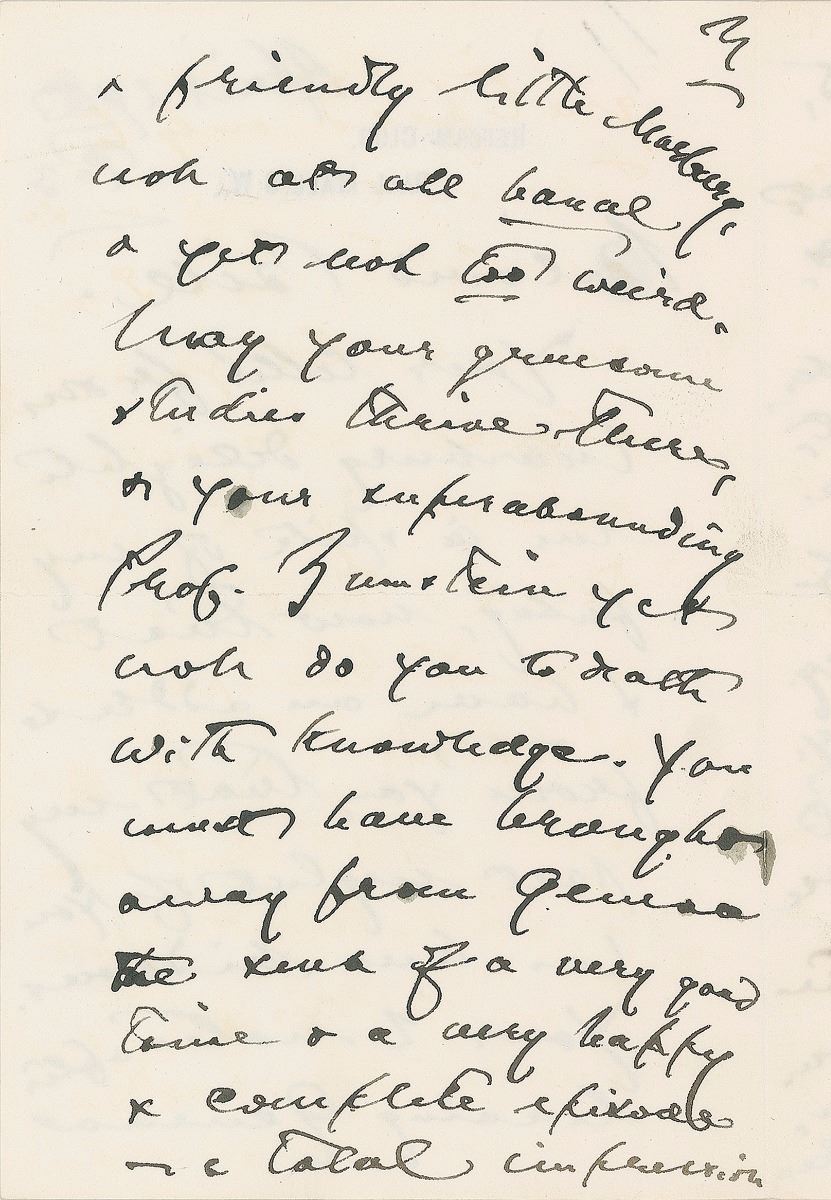 a friendly little Marburg,
not at all banal
& yet not too weird.
May your gruesome
studies thrive there,
& your superabounding
Prof. Zumstein yet
not do you to death
with knowledge. You
must have brought
away from Genoa
the sense of a very good
time & a very happy
& complete episode
— a total impression